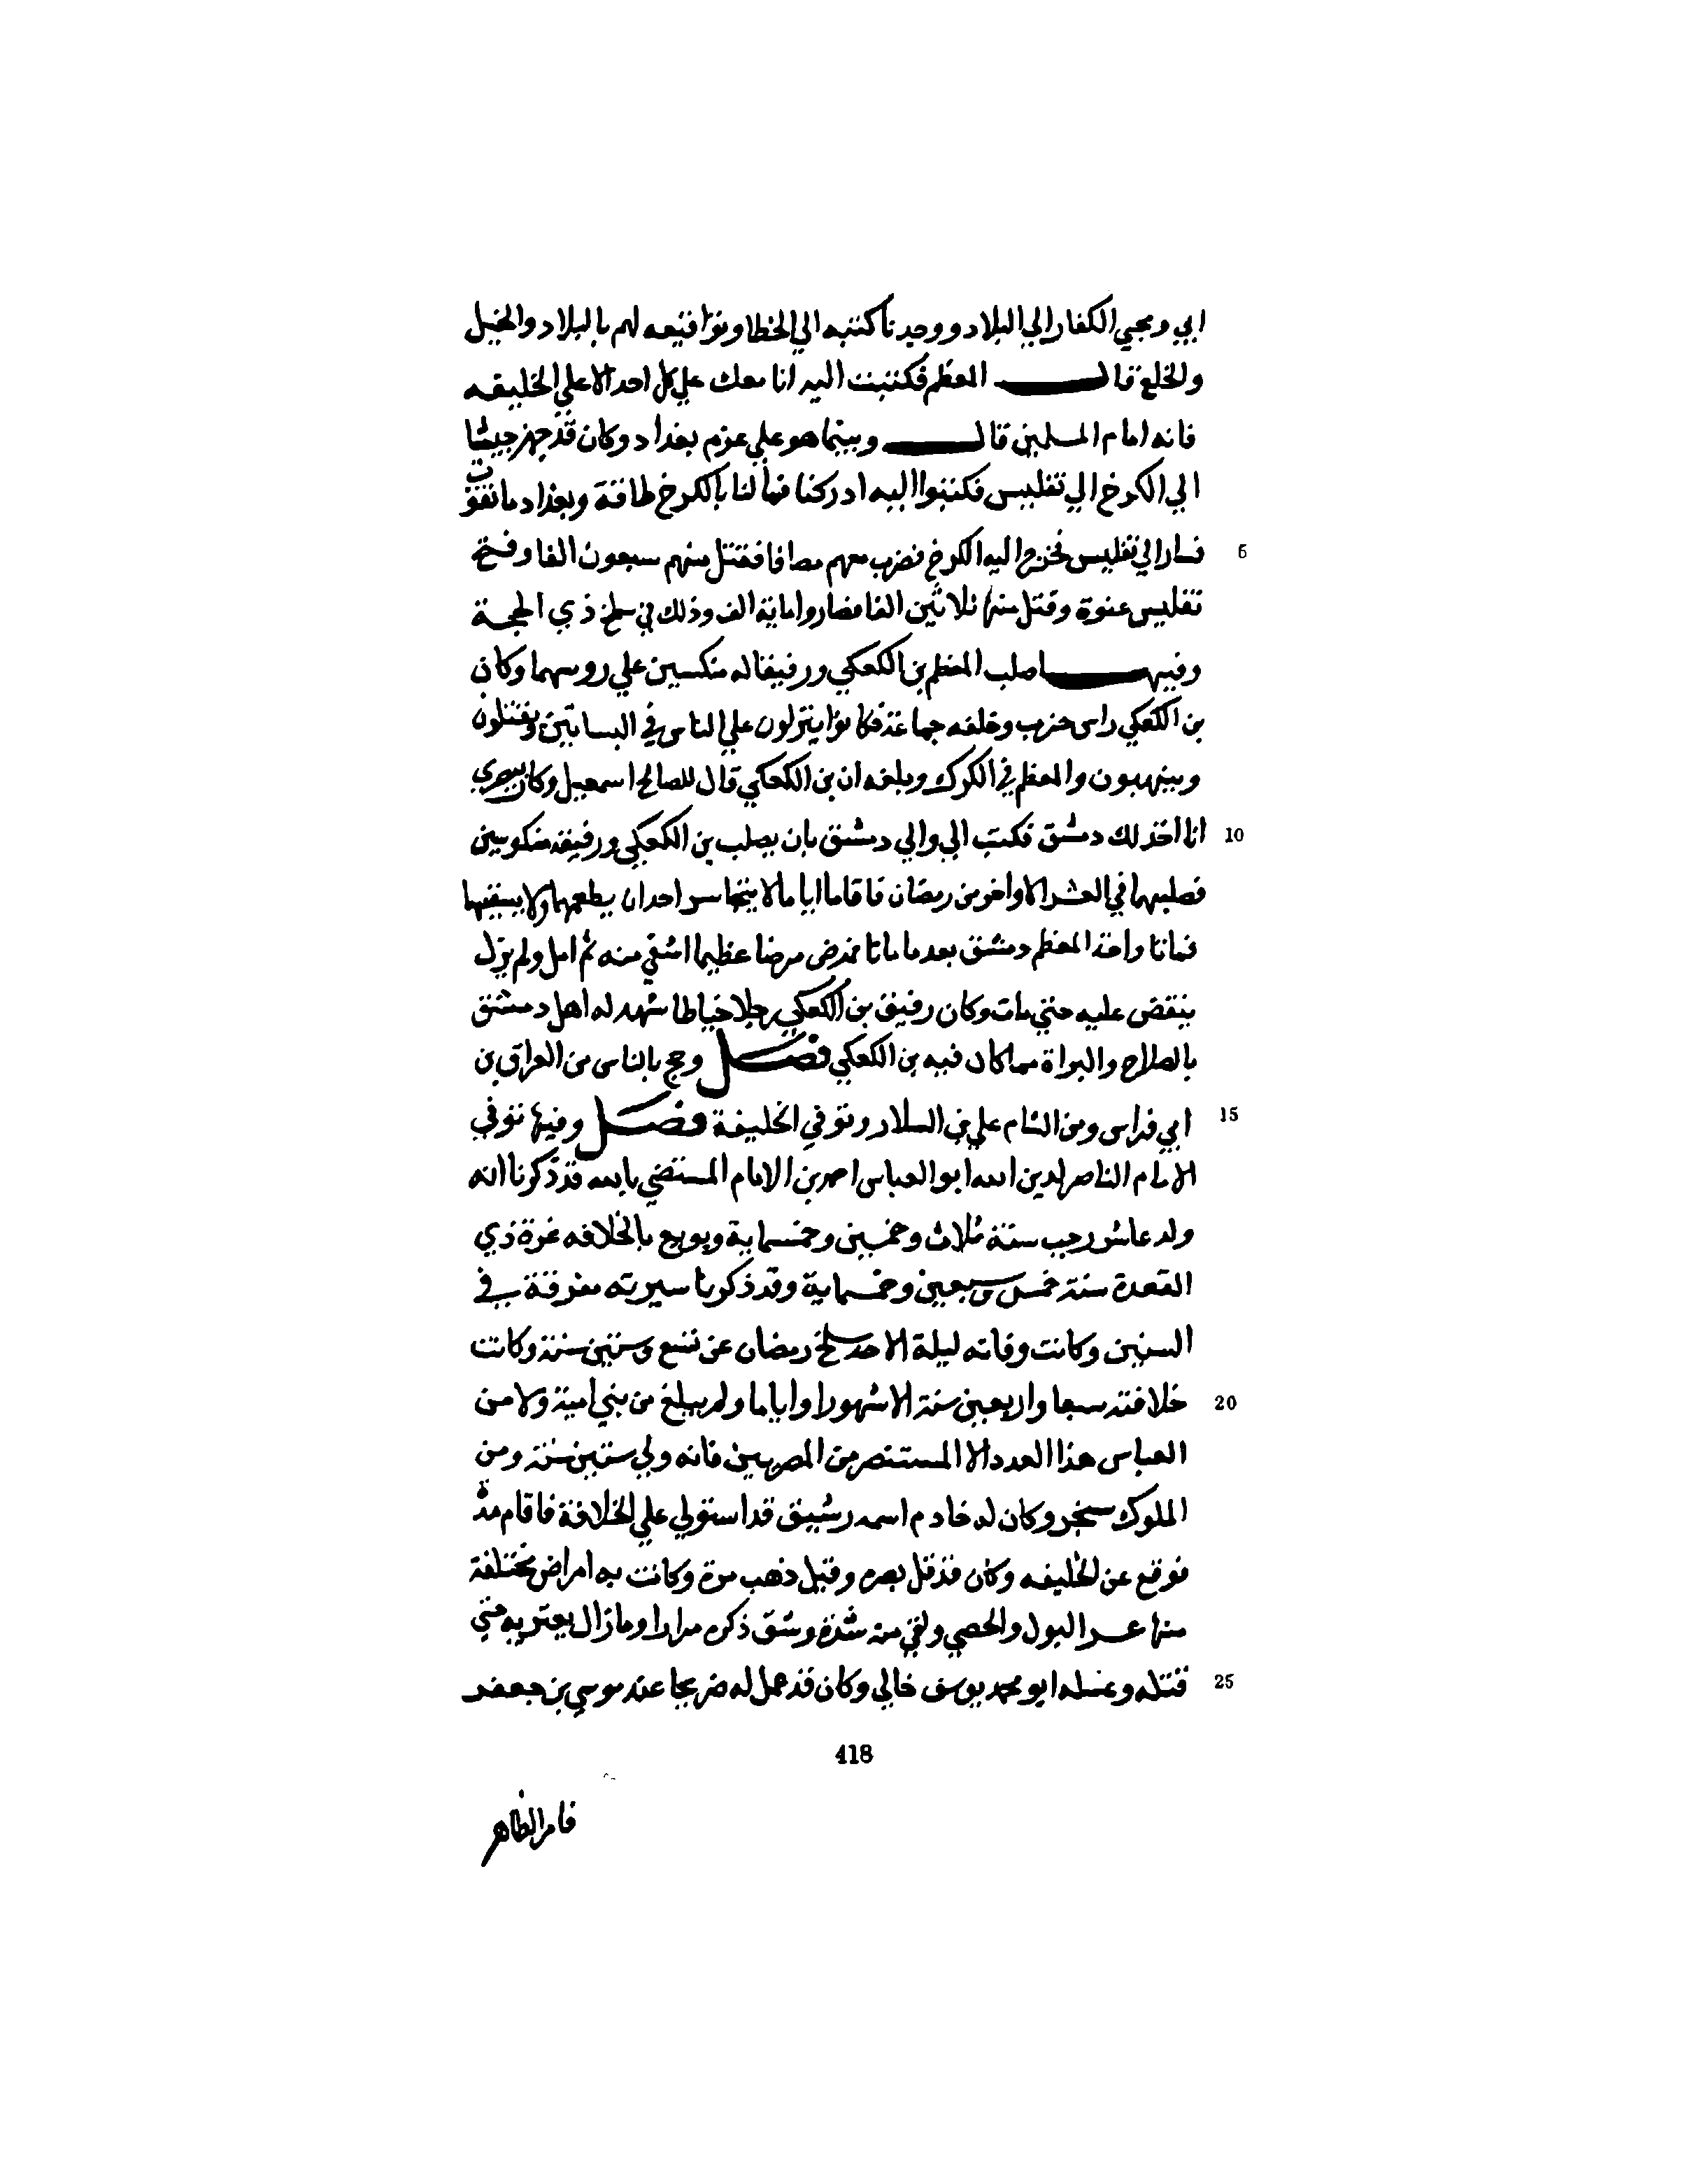 ابي ومجي الكفار الي البلاد ووجدنا كتبه الي الخطا وتواقيعه لهم بالبلاد والخيل
والخلع قال المعظم فكتبت اليه انا معك علي كل احد الا علي الخليفه
فانه امام المسلمين قال وبينما هو علي عزم بغداد وكان قد جهز جيشا
الي الكرخ الي تفليس فكتبوا اليه ادركنا فما لنا بالكرخ طاقة وبغداد ما تفوت
5 فسار الي تفليس فخرج اليه الكرخ فضرب معهم مصافا فقتل منهم سبعون الفا وفتح
تفليس عنوة وقتل منها ثلاثين الفا فصاروا ماية الف وذلك في سلخ ذي الحجة
وفيها صلب المعظم بن الكعكي ورفيقا له منكسين علي روسهما وكان
بن الكعكي راس حزب وخلفه جماعة فكانوا ينزلون علي الناس في البساتين ويقتلون
وينهبون والمعظم في الكرك وبلغه ان بن الكعكي قال للصالح اسمعيل وكان ببصري
10 انا اخذ لك دمشق فكتب الي والي دمشق بان يصلب بن الكعكي ورفيقه منكوسين
فصلبهما في العشر الاواخر من رمضان فاقاما اياما لا يتجاسر احد ان يطعمهما ولا يسقيهما
فماتا وافي المعظم دمشق بعد ما ماتا فمرض مرضا عظيما اشفي منه ثم ابل ولم يزل
ينتقض عليه حتي مات وكان رفيق بن الكعكي رجلا خياطا شهد له اهل دمشق
بالصلاح والبراة مما كان فيه بن الكعكي فصل وحج بالناس من العراق بن
15 ابي فراس ومن الشام علي بن السلار وتوفي الخليفة فصل وفيها توفي
الامام الناصر لدين الله ابو العباس احمد بن الامام المستضي بالله قد ذكرنا انه
ولد عاشر رجب سنة ثلاث وخمسين وخمسماية وبويع بالخلافه غرة ذي
القعدة سنة خمس وسبعين وخمسماية وقد ذكرنا سيرته مفرقة في
السنين وكانت وفاته ليلة الاحد سلخ رمضان عن تسع وستين سنة وكانت
20 خلافته سبعا واربعين سنة الا شهورا واياما ولم يبلغ من بني امية ولا من
العباس هذا العدد الا المستنصر من المصريين فانه ولي ستين سنة ومن
الملوك سنجر وكان له خادم اسمه رشيق قد استولي علي الخلافة فاقام مدة
يوقع عن الخليفه وكان قد قل بصره وقيل ذهب مرة وكانت به امراض مختلفة
منها عسر البول والحصي ولقي منه شدة وشق ذكره مرارا وما زال يعتريه حتي
25 قتله وغسله ابو محمد يوسف خالي وكان قد عمل له ضريحا عند موسي بن جعفر
418
فامر الظاهر